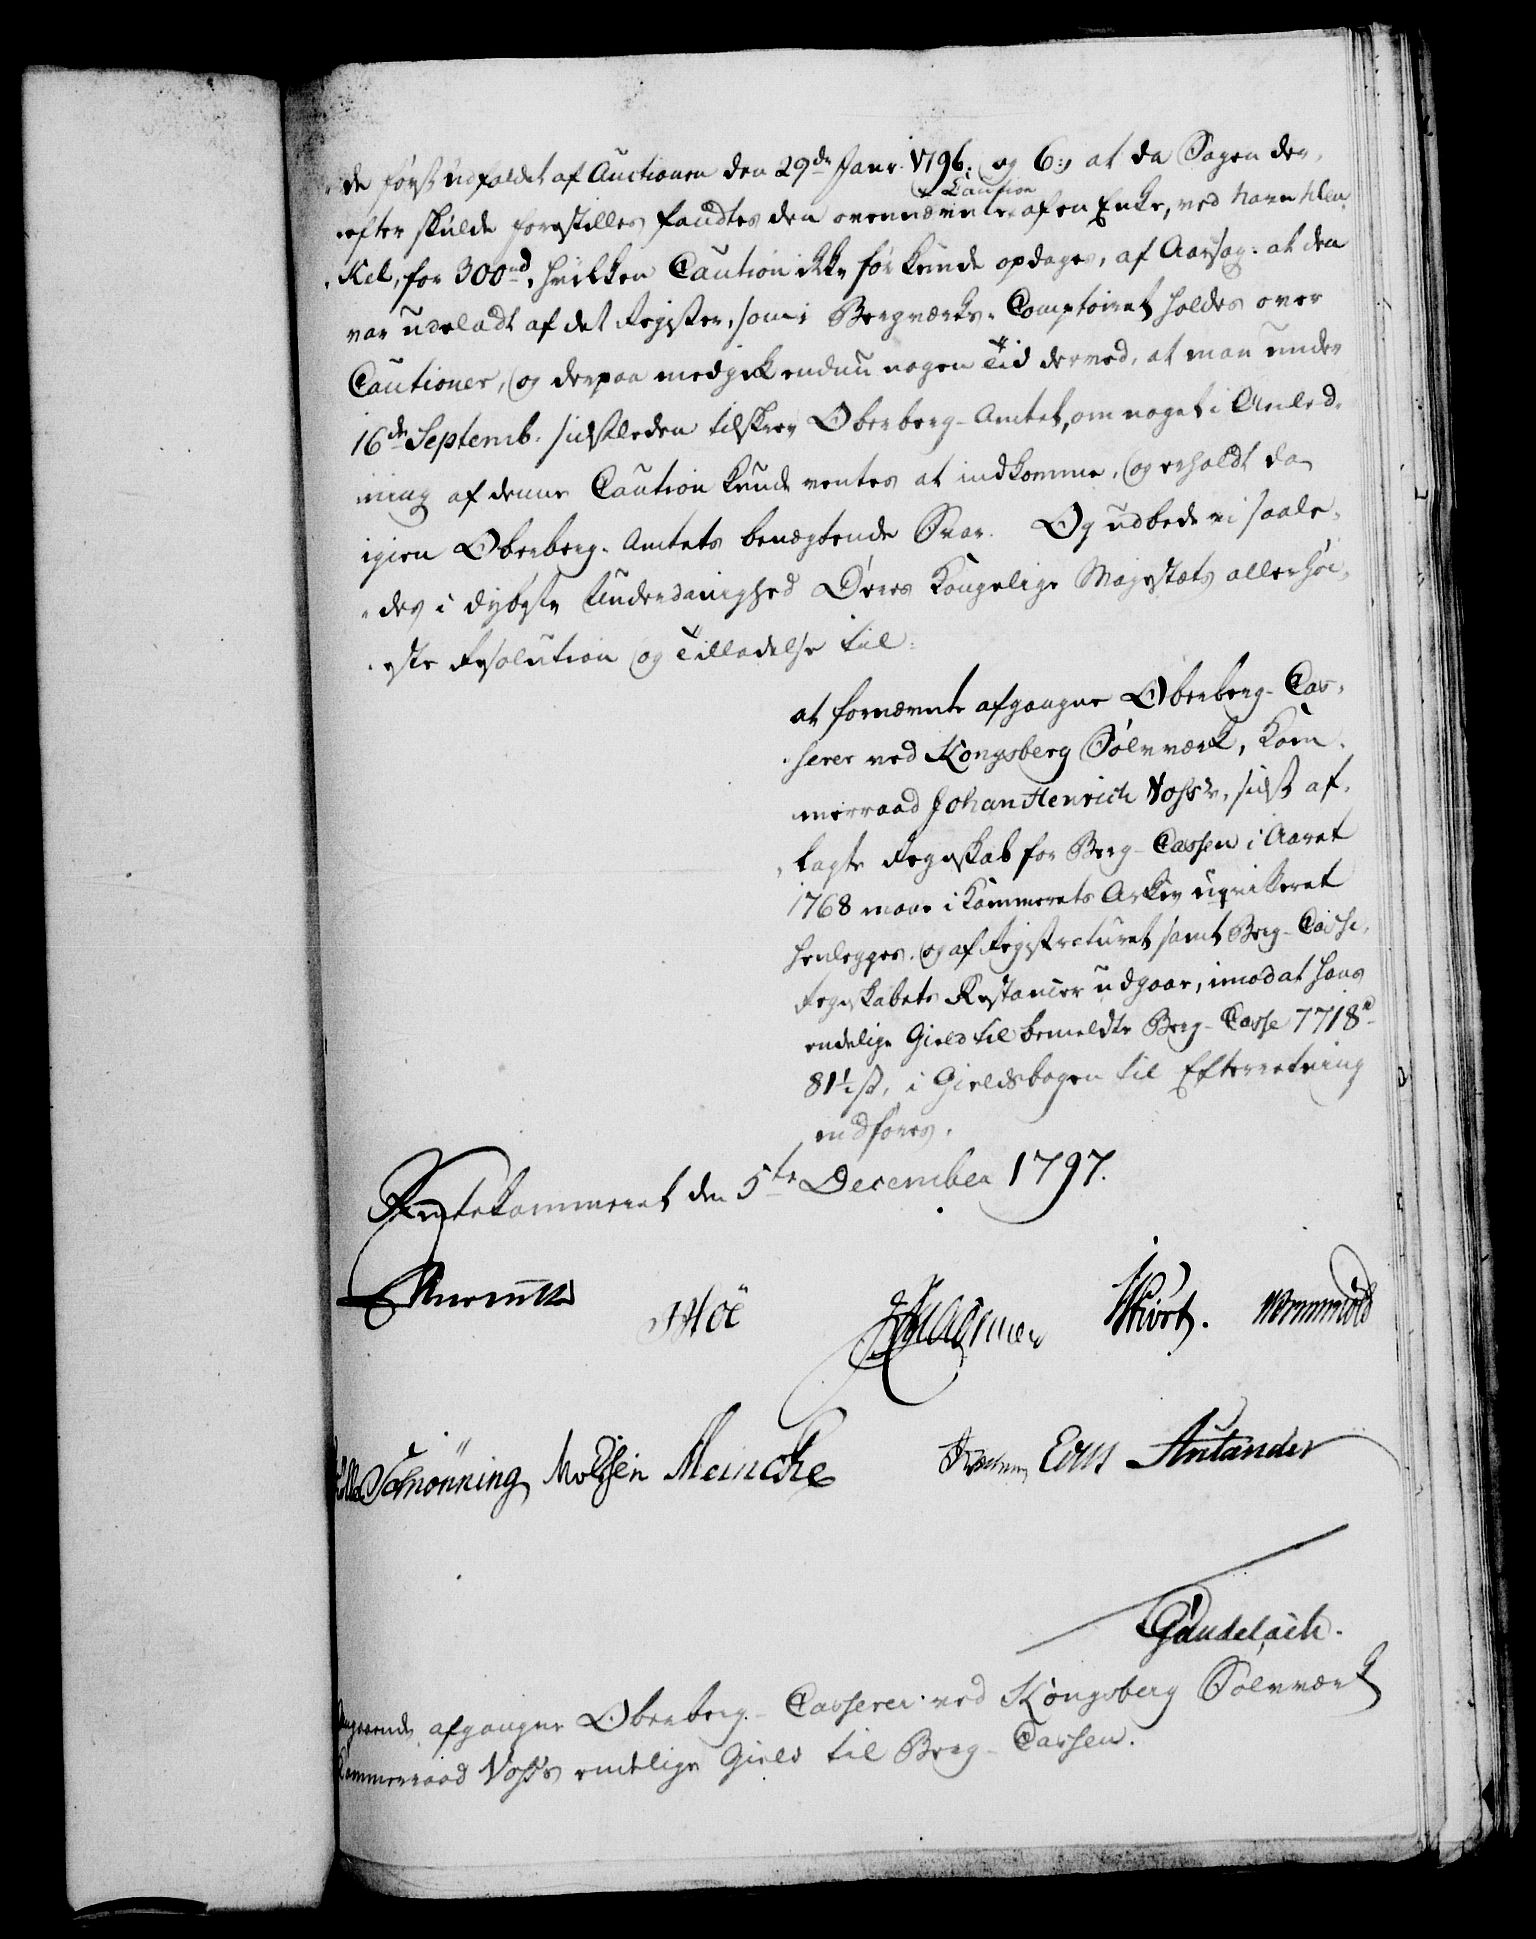 de først udfaldet af Auctionen den 29de Janr. 1796. og 6:, at da Sagen der-
efter skulde forestilles fandtes den ovennævnte Caution af en Enke, ved Navn
kel, for 300rd, hvilken Caution ikke før kunde opdages, af Aarsag: at den
var udeladt af det Register, som i Bergværks-Comptoiret holdes over
Cautioner, og derpaa medgik endnu nogen Tid derved, at man under
16de Septemb. sidstleden tilskrev Oberberg-Amtet, om noget i Anled-
ning af denne Caution kunde ventes at indkomme, og erholdt da
igien Oberberg-Amtets benægtende Svar. Og udbede vi saale-
des i dybeste Underdanighed Deres Kongelige Majestæts allerhøi-
este Resolution og Tilladelse til:
at fornævnte afgangne Oberberg-Cas-
serer ved Kongsberg Sølvværk, Kam-
merraad Johan Henrich Voss's, sidst af-
lagte Regnskab for Berg-Cassen i Aaret
1768 maae i Kammerets Arkiv uqvitteret
henlegges, og af Registraturet samt Berg-Casse-
Regnskabets Restancer udgaae, imod at hans
endelige Gield til bemeldte Berg-Casse 7718rd
81½ s, i Gieldsbogen til Efterretning
indføres.
Rentekammeret den 5te December 1797.
Hoë Wagener Hiort. Wormskiold
Schønning Meincke Eeus Autander
Gündelach.
Angaaende afgangne Oberberg-Casserer ved Kongsberg Sølvværk
Kammerraad Voss's endelige Gield til Berg-Cassen.